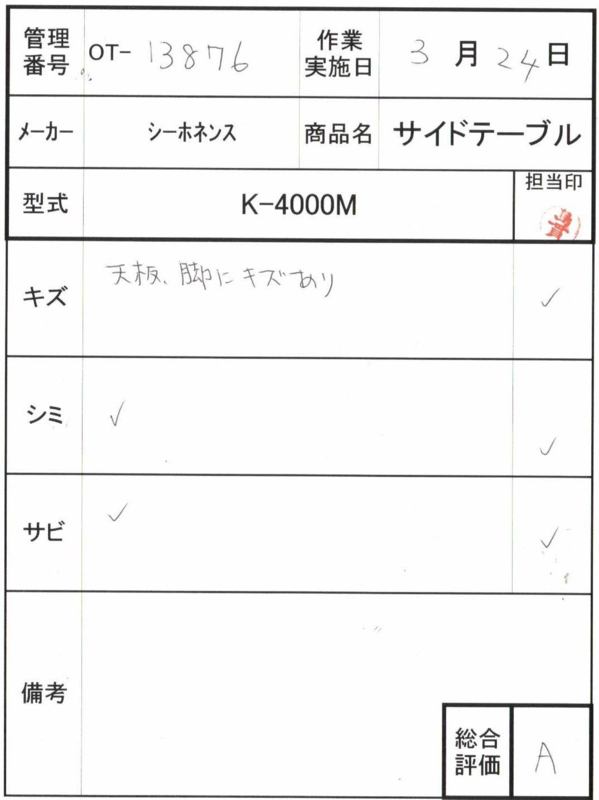 管理番号 OT- 13876 作業実施日 3月24日
メーカー シーホネンス 商品名 サイドテーブル
型式 K-4000M 担当印
キズ 天板、脚にキズあり ✓
シミ ✓ ✓
サビ ✓ ✓
備考
総合評価 A